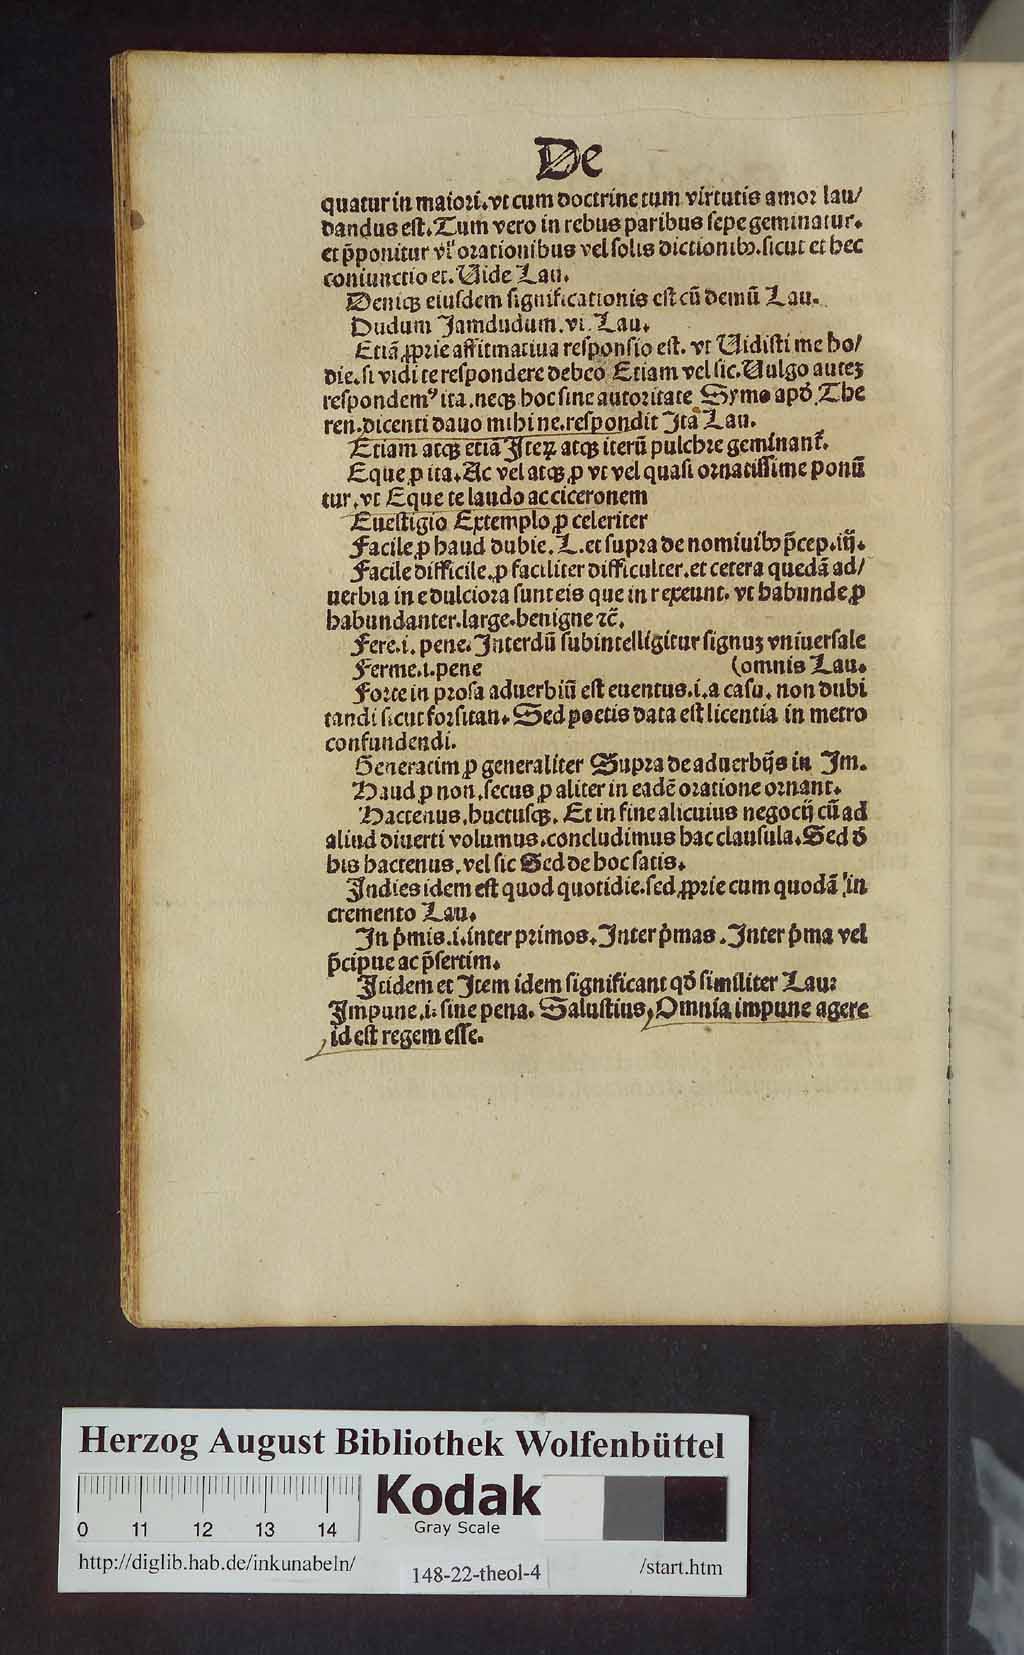 De
quatur in maiori. vt cum doctrine tum virtutis amor lau/
dandus est. Tum vero in rebus paribus sepe geminatur.
et p̄ponitur vl' orationibus vel solis dictionibꝰ. sicut et hec
coniunctio et. Uide Lau.
Deniqꝫ eiusdem significationis est cū demū Lau.
Dudum Jamdudum. vi. Lau.
Etiā ꝓprie affirmatiua responsio est. vt Uidisti me ho/
die. si vidi te respondere debeo Etiam vel sic. Uulgo auteꝫ
respondemꝰ ita. neqꝫ hoc sine autoritate Symo apd̄. The
ren. dicenti dauo mihi ne. respondit Ita Lau.
Etiam atqꝫ etiā Iteꝫ atqꝫ iterū pulchre geminant̄.
Eque ꝓ ita. Ac vel atqꝫ ꝓ vt vel quasi ornatissime ponū
tur. vt Eque te laudo ac ciceronem
Euestigio Extemplo ꝓ celeriter
Facile ꝓ haud dubie. L. et supra de nominibꝰ p̄cep. iij.
Facile difficile. ꝓ faciliter difficulter. et cetera quedā ad/
uerbia in e dulciora sunt eis que in r exeunt. vt habunde ꝓ
habundanter. large. benigne ⁊c̄.
Fere .i. pene. Interdū subintelligitur signuꝫ vniuersale
Ferme .i. pene (omnis Lau.
Forte in prosa aduerbiū est euentus .i. a casu. non dubi
tandi sicut forsitan. Sed poetis data est licentia in metro
confundendi.
Generatim ꝓ generaliter Supra de aduerbijs in Im.
Haud ꝓ non. secus ꝓ aliter in eadē oratione ornant.
Hactenus, huctusqꝫ. Et in fine alicuius negocij cū ad
aliud diuerti volumus. concludimus hac clausula. Sed d̄
his hactenus. vel sic Sed de hoc satis.
Indies idem est quod quotidie. sed ꝓprie cum quodā in
cremento Lau.
In p̄mis .i. inter primos. Inter p̄mas. Inter p̄ma vel
p̄cipue ac p̄sertim.
Itidem et Item idem significant qd̄ similiter Lau:
Impune .i. sine pena. Salustius, Omnia impune agere
id est regem esse.
Herzog August Bibliothek Wolfenbüttel
0 11 12 13 14
Kodak
Gray Scale
http://diglib.hab.de/inkunabeln/ 148-22-theol-4 /start.htm